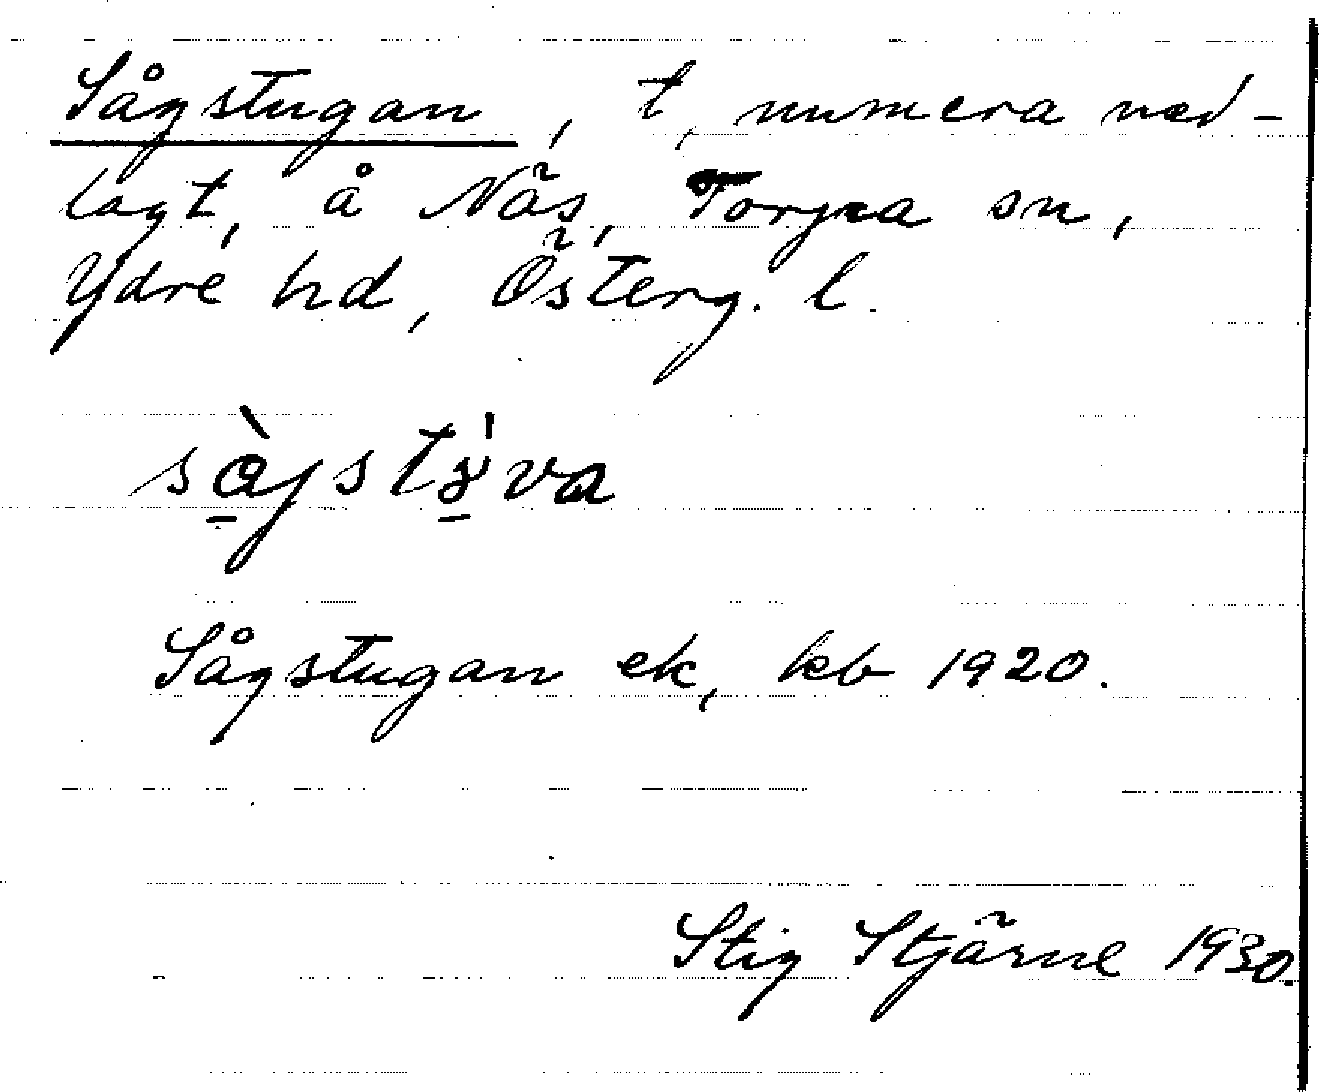 Sågstugan, t, numera ned-
lagt, å Näs, Torpa sn,
Ydre hd, Österg. l.
Sågstugan ek, kb 1920.
Stig Stjärne 1930.